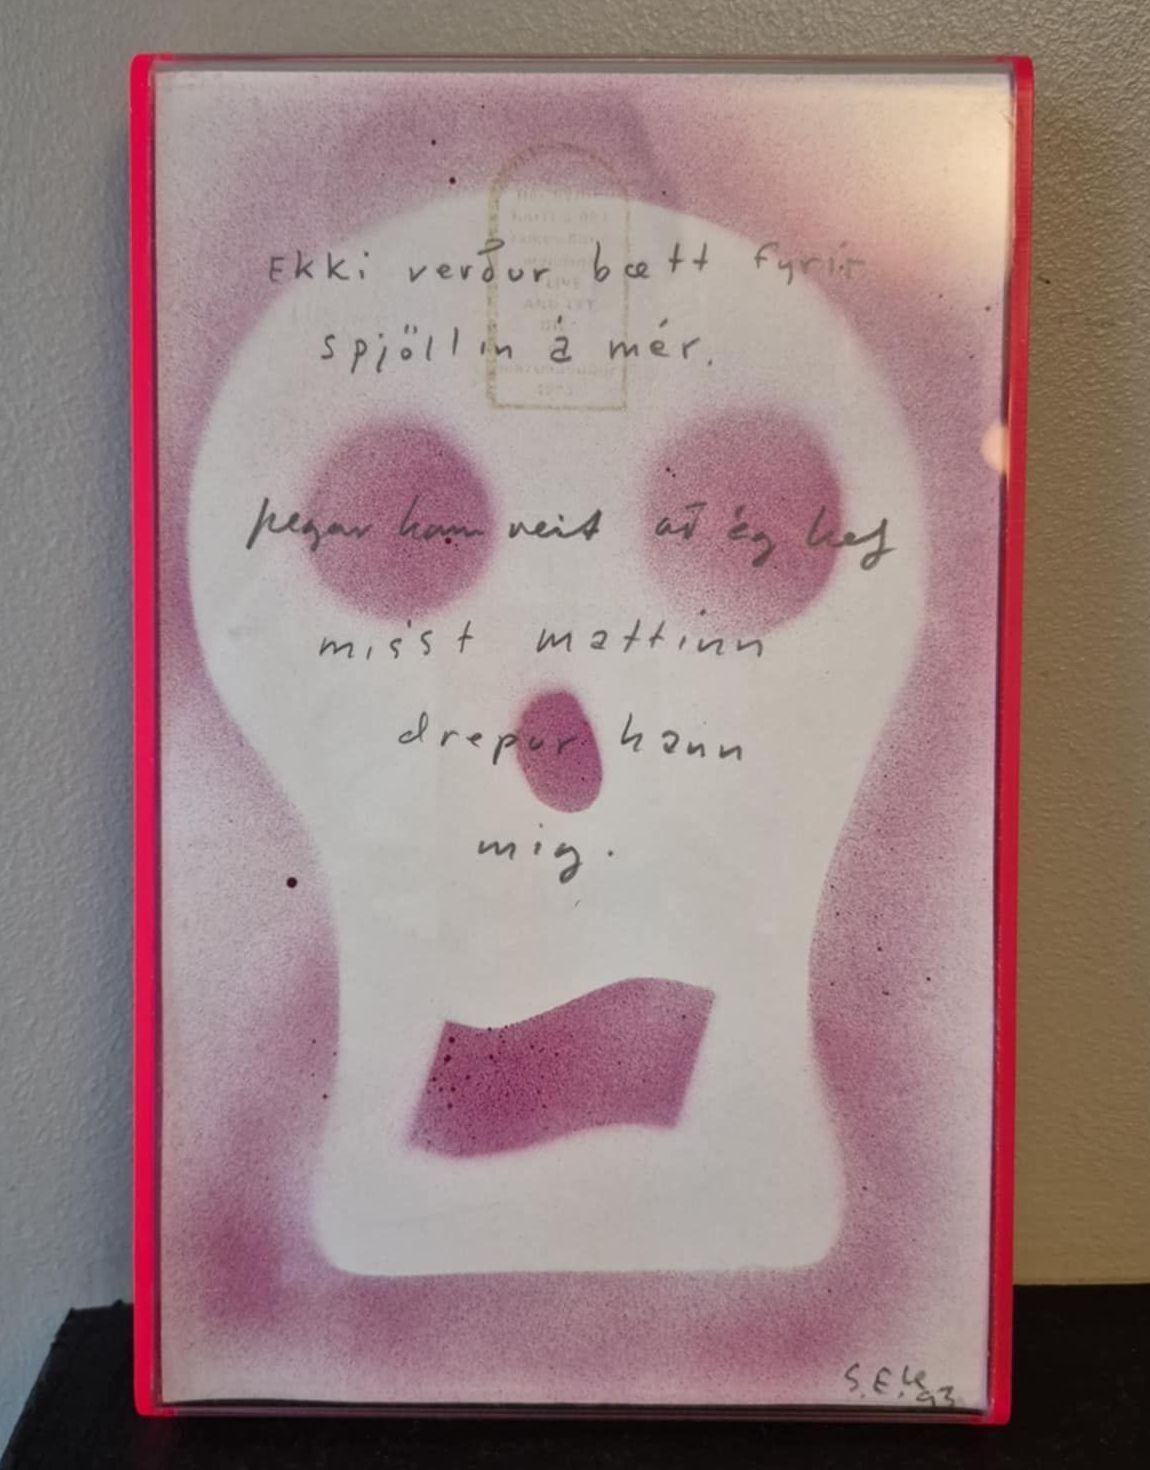 Ekki verður bætt fyrir
spjöllin á mér.
þegar hann veit að ég hef
misst mattinn
drepur hann
mig.
LIVE
S.E.
93